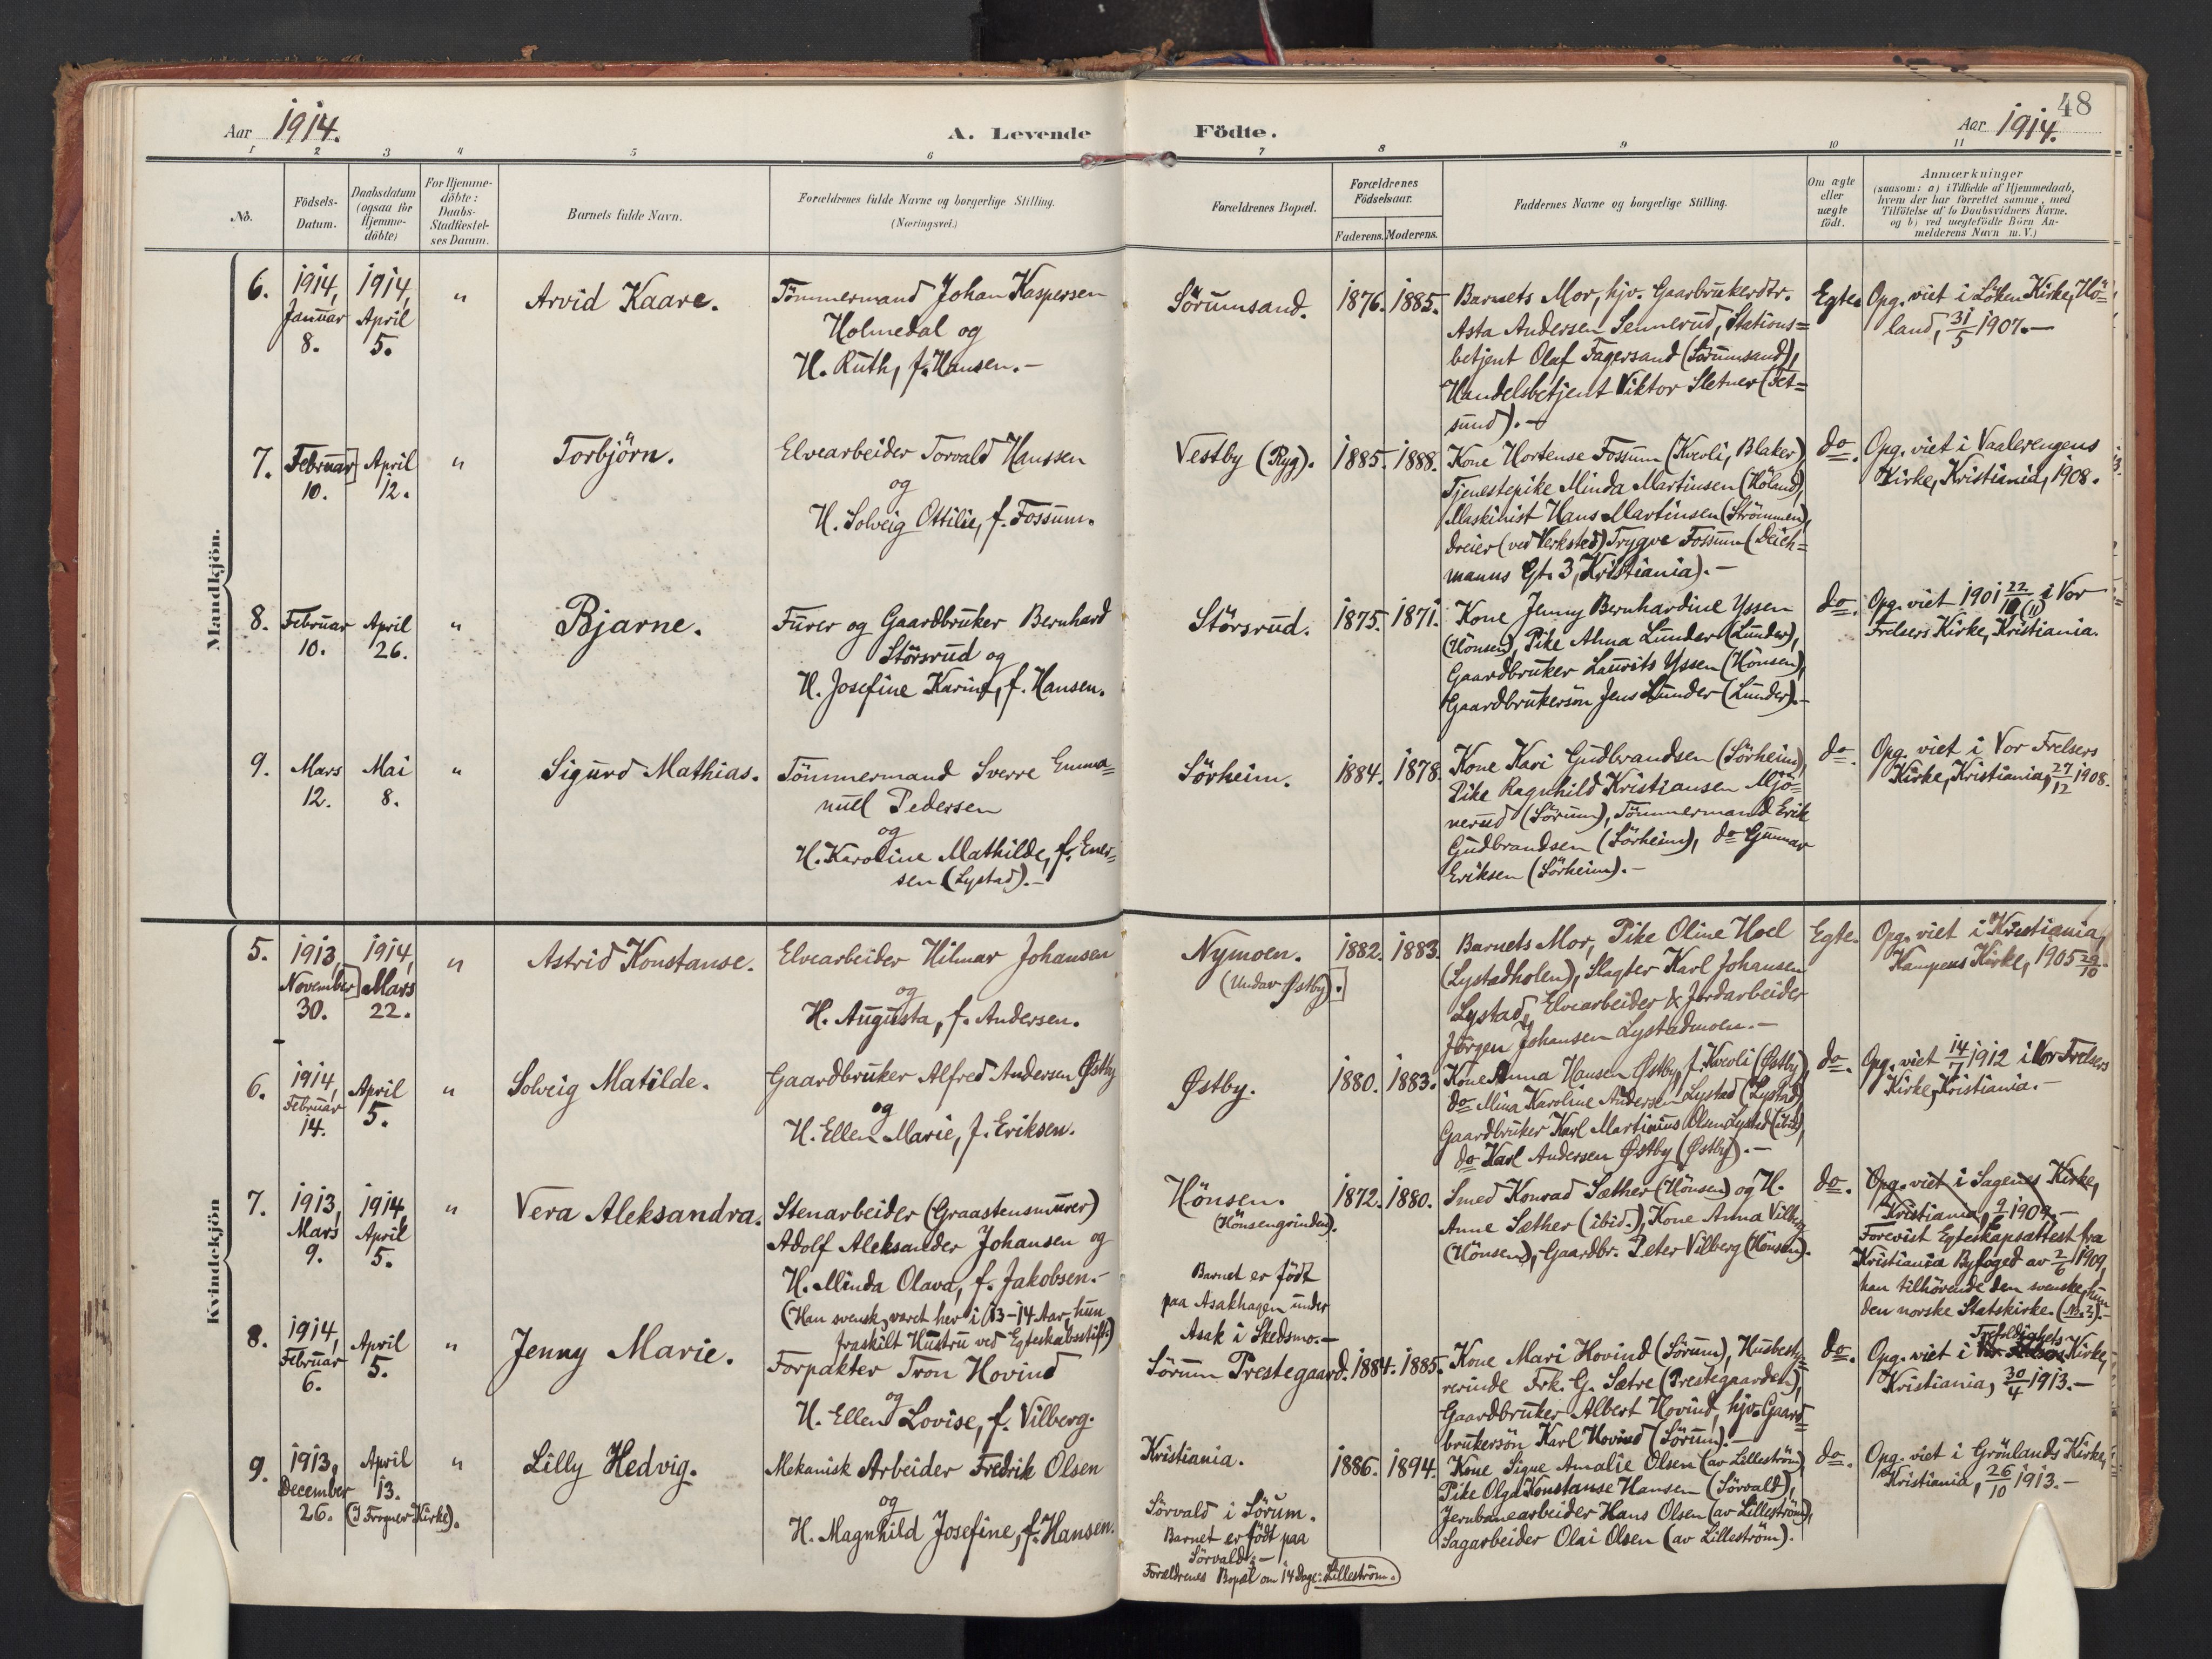 48
Aar 1914.
A. Levende Födte.
Aar 1914.
1 2 3 4 5 6 7 8 9 10 11
No.
Födsels-
Datum.
Daabsdatum
(ogsaa for
Hjemme-
döbte)
For Hjemme-
döbte:
Daabs-
Stadfæstel-
ses Datum.
Barnets fulde Navn.
Forældrenes fulde Navne og borgerlige Stilling.
(Næringsvei.)
Forældrenes Bopæl.
Forældrenes
Födselsaar.
Faderens. Moderens.
Faddernes Navne og borgerlige Stilling.
Om ægte
eller
uægte
födt.
Anmærkninger
(saasom: a) i Tilfælde af Hjemmedaab,
hvem der har forrettet samme, med
Tilföielse af to Daabsvidners Navne.
og b) ved uægtefödte Börn An-
melderens Navn m. V.)
Mandkjön.
6.
1914,
Januar
8.
1914,
April
5.
"
Arvid Kaare.
Tömmermand Johan Kaspersen
Holmedal og
H. Ruth, f. Hansen.-
Sörumsand.
1876. 1885.
Barnets Mor, hjv. Gaarbrukerdtr.
Asta Andersen Sennerud, Stations=
betjent Olaf Fagersand (Sörumsand),
Handelsbetjent Viktor Sletner (Fet=
sund).-
Egte.
Opg. viet i Löken Kirke, Hö=
land, 31/5 1907.-
7.
Februar
10.
April
12.
"
Torbjörn.
Elvearbeider Torvald Hanssen
og
H. Solveig Ottilie, f. Fossum.
Vestby (Ryg).
1885. 1888.
Kone Hortense Fossum (Kvevli, Blaker)
Tjenestepike Minda Martinsen (Höland),
Maskinist Hans Martinsen (Strömmen),
Dreier (ved Verksted) Trygve Fossum (Deich=
manns Gt. 3, Kristiania).-
do.
Opg. viet i Vaalerengens
Kirke, Kristiania, 1908.
8.
Februar
10.
April
26.
"
Bjarne.
Furer og Gaardbruker Bernhard
Störsrud og
H. Josefine Karine, f. Hansen.
Störsrud.
1875. 1871.
Kone Jenny Bernhardine Yssen
(Hönsen), Pike Alma Lunder (Lunder),
Gaardbruker Laurits Yssen (Hönsen),
Gaardbrukersön Jens Lunder (Lunder).-
do.
Opg. viet 1901 22/10 (11) i Vor
Frelsers Kirke, Kristiania.
9.
Mars
12.
Mai
8.
"
Sigurd Mathias.
Tömmermand Sverre Emma=
nuel Pedersen
og
H. Karoline Mathilde, f. Ener=
sen (Lystad).-
Sörheim.
1884. 1878.
Kone Kari Gudbrandsen (Sörheim),
Pike Ragnhild Kristiansen Mjö=
nerud (Sörum), Tömmermand Erik
Gudbrandsen (Sörheim), do Gunnar
Eriksen (Sörheim).-
do.
Opg. viet i Vor Frelsers
Kirke, Kristiania, 27/12 1908.
Kvindekjön
5.
1913,
November
30.
1914,
Mars
22.
"
Astrid Konstanse.
Elvearbeider Hilmar Johansen
og
H. Augusta, f. Andersen.
Nymoen.
(Under Østby).
1882. 1883.
Barnets Mor, Pike Oline Hoel
(Lystadholen), Slagter Karl Johansen
Lystad, Elvearbeider & Jordarbeider
Jörgen Johansen Lystadmoen.-
Egte.
Opg. viet i Kristiania,
Kampens Kirke, 1905 29/10.
6.
1914,
Februar
14.
April
5.
"
Solveig Matilde.
Gaardbruker Alfred Andersen Østby
og
H. Ellen Marie, f. Eriksen.
Østby.
1880. 1883.
Kone Anna Hansen Østby, f. Kvevli (Østby)
do Mina Karoline Andersen Lystad (Lystad),
Gaardbruker Karl Martinius Olsen Lystad (ibid),
do Karl Andersen Østby (Østby).-
do.
Opg. viet 14/7 1912 i Vor Frelsers
Kirke, Kristiania.-
7.
1913,
Mars
9.
1914,
April
5.
"
Vera Aleksandra.
Stenarbeider (Graastensmurer)
Adolf Aleksander Johansen og
H. Minda Olava, f. Jakobsen.-
(Han svensk, været her i 13-14 Aar, hun
fraskilt Hustru ved Egteskabsstift.)
Hönsen.
(Hönsengrinden).
Barnet er födt
paa Asakhagen under
Asak i Skedsmo.-
1872. 1880.
Smed Konrad Sæther (Hönsen) og H.
Anne Sæther (ibid.), Kone Anna Vilberg
(Hönsen), Gaardbr. Peter Vilberg (Hönsen).
do.
Opg. viet i Sagenes Kirke,
Kristiania, 1909.-
Forevist Egteskapsattest fra
Kristiania Byfoged av 2/6 1909,
han tilhörende den svenske, hun
den norske Statskirke. (No. 3).-
8.
1914,
Februar
6.
April
5.
"
Jenny Marie.
Forpakter Tron Hovind
og
H. Ellen Lovise, f. Vilberg.
Sörum Prestegaard.
1884. 1885.
Kone Mari Hovind (Sörum), Husbesty=
rerinde Frk. G. Sætre (Prestegaarden),
Gaardbruker Albert Hovind, hjv. Gaard=
brukersön Karl Hovind (Sörum).-
do.
Opg. viet i Trefoldigheds Kirke,
Kristiania, 30/4 1913.-
9.
1913,
December
26.
April
13.
(I Frogner Kirke).
"
Lilly Hedvig.
Mekanisk Arbeider Fredrik Olsen
og
H. Magnhild Josefine, f. Hansen.
Kristiania.
Sörvald i Sörum.
Barnet er födt paa
Sörvald.-
Forældrenes Bopæl om 14 Dage: Lilleström.
1886. 1894.
Kone Signe Amalie Olsen (av Lilleström)
Pike Olga Konstanse Hansen (Sörvald),
Jernbanearbeider Hans Olsen (av Lilleström),
Sagarbeider Olai Olsen (av Lilleström).
do.
Opg. viet i Grönlands Kirke,
Kristiania, 26/10 1913.-